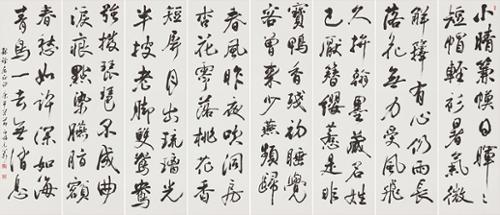 小晴簾幕日暉暉
短帽輕衫暑氣微
解籜有心仍雨長
落花無力受風飛
久拚翰墨藏名姓
已厭簪纓惹是非
寶鴨香殘初睡覺
客曾來少燕頻歸
春風昨夜吹洞房
杏花零落桃花香
短屏月出琉璃光
半披老脚雙鴛鴦
強撥琵琶不成曲
淚痕點染嬌脂額
春愁如許深如海
青鳥一去無消息